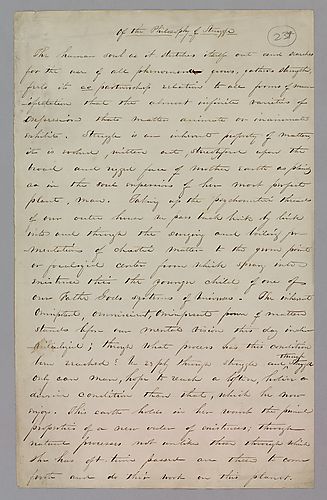 Of the Philosophy of Struggle
23
The human soul as it stretches itself out and searches
for the use of all phenomena grows, gathers strength,
feels its partnership relations to all forms of man-
ifestation that the almost infinite varieties of
expression that matter animate or inanimate
exhibits. Struggle is an inherent property of matter,
it is evolved, written out, stretched upon the
broad and rugged face of mother earth as plainly
as in the soul expressions of her most perfect
plant, man. Taking up the psychometric threads
of our outer house we pass back link by link
into and through the surging and boiling fer-
mentations of chaotic matter to the germ point
or center from which sprang into
existence this the younger child of one of
our Father Gods systems of Universes. The inherent
Omnipotent, omniscient, Omnipresent power of matter
stands before our mental vision this day indi-
vidualized; through what process has this condition
been reached? through struggle and through struggle
only can man, hope to reach a loftier, holier a
diviner condition than that, which he now
enjoys. This earth holds in her womb the
properties of a new order of existence; through
natural processes not unlike those through which
she has oft-times passed are these to come
forth and do their work on this planet.